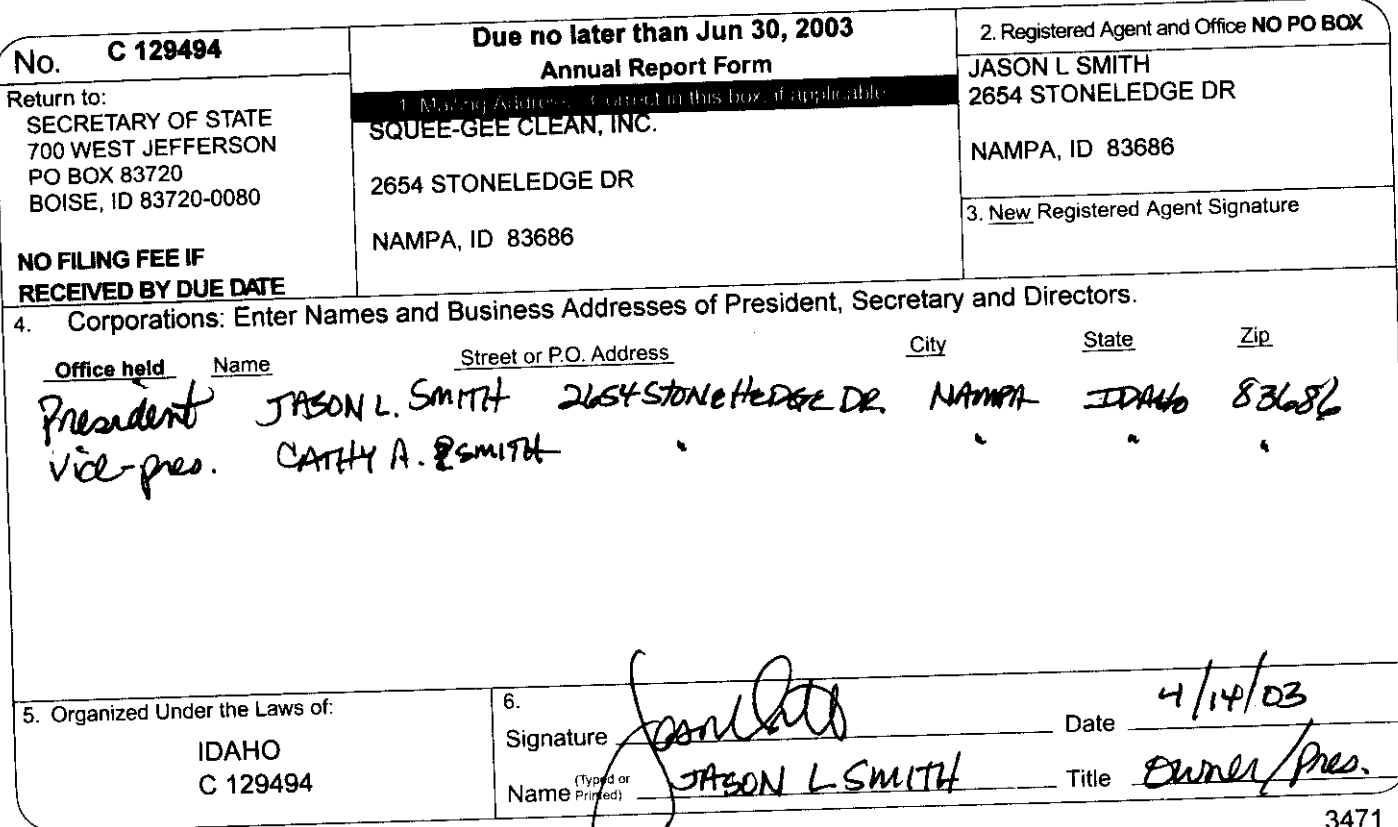 No. C 129494
Return to:
SECRETARY OF STATE
700 WEST JEFFERSON
PO BOX 83720
BOISE, ID 83720-0080
NO FILING FEE IF
RECEIVED BY DUE DATE
Due no later than Jun 30, 2003
Annual Report Form
1. Mailing Address: Correct in this box, if applicable
SQUEE-GEE CLEAN, INC.
2654 STONELEDGE DR
NAMPA, ID 83686
2. Registered Agent and Office NO PO BOX
JASON L SMITH
2654 STONELEDGE DR
NAMPA, ID 83686
3. New Registered Agent Signature
4. Corporations: Enter Names and Business Addresses of President, Secretary and Directors.
Office held Name Street or P.O. Address City State Zip
President JASON L. SMITH 2654 STONEHEDGE DR. NAMPA IDAHO 83686
Vice-pres. CATHY A. SMITH " " " "
5. Organized Under the Laws of:
IDAHO
C 129494
6.
Signature Date 4/14/03
Name (Typed or Printed) JASON L SMITH Title Owner/Pres.
3471